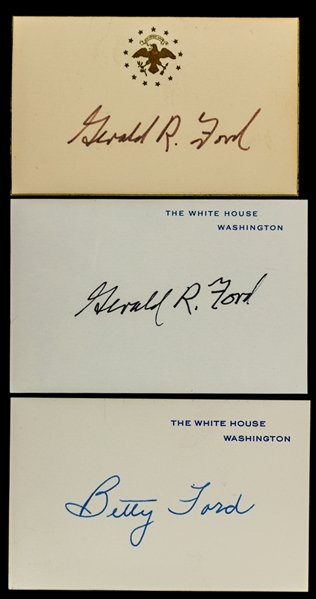 Gerald R. Ford
THE WHITE HOUSE
WASHINGTON
Gerald R. Ford
THE WHITE HOUSE
WASHINGTON
Betty Ford